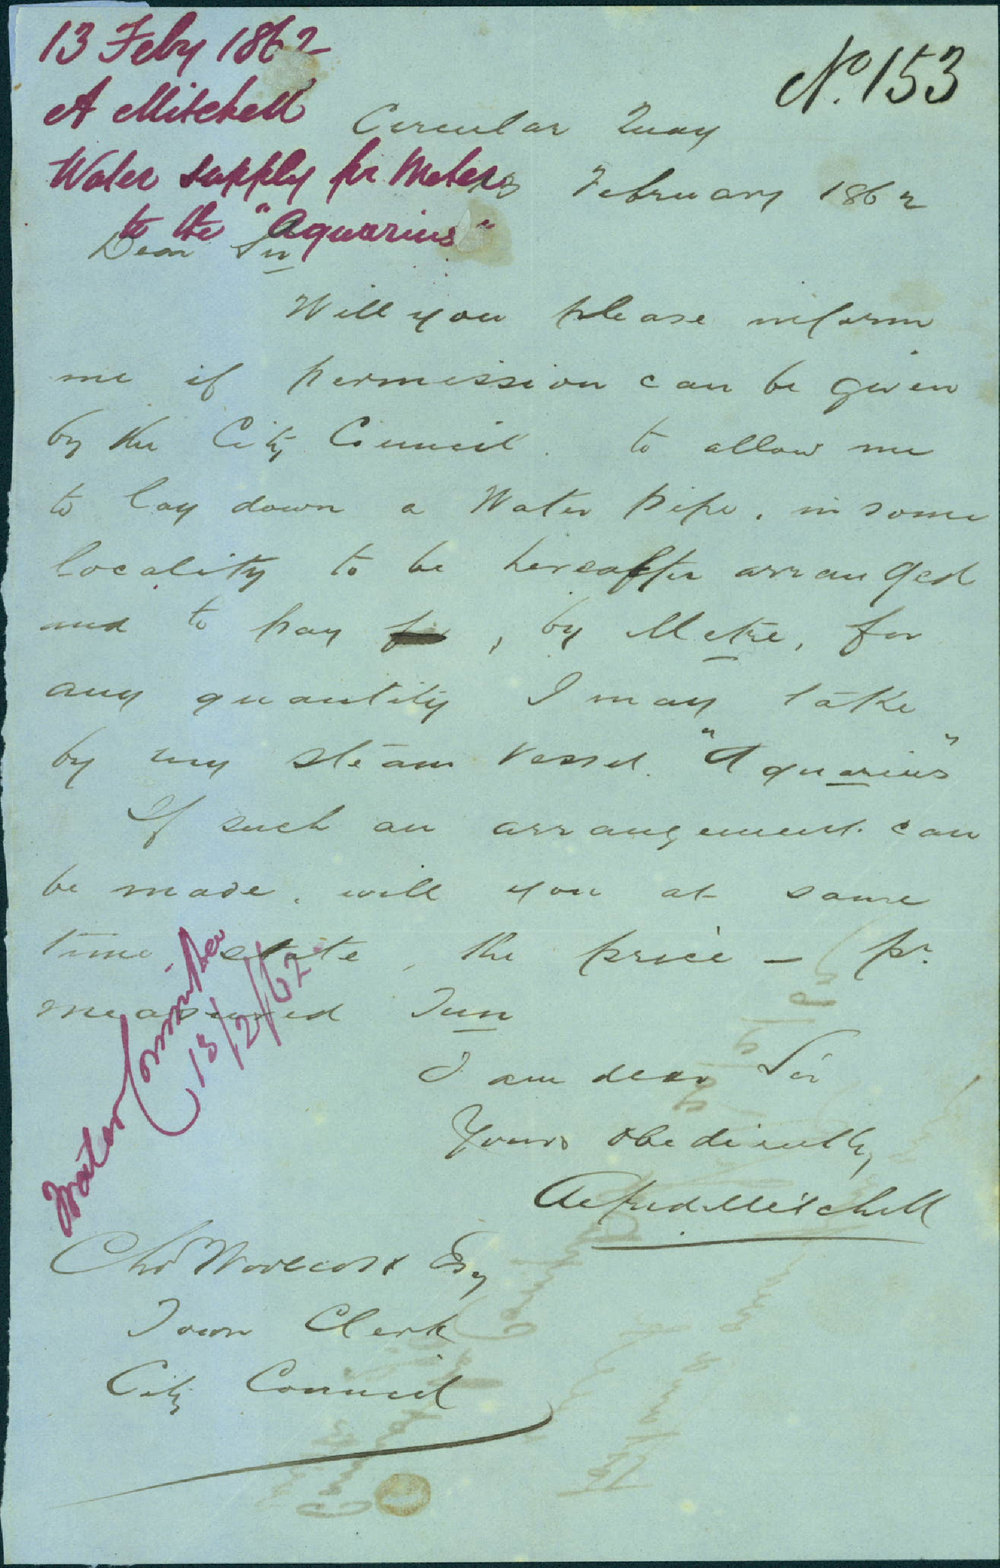 13 Feby 1862
A Mitchell
Water supply per Meter
to the "Aquarius"
No. 153
Circular Quay
February 1862
Dear Sir
Will you please inform
me if permission can be given
by the City Council. to allow me
to lay down a Water pipe, in some
locality to be hereafter arranged
and to pay , by Metre, for
any quantity I may take
by my steam vessel "Aquarius"
If such an arrangement can
be made, will you at same
time, state, the price – pr.
measured Tun
I am dear Sir
Yours obediently
Alfred Mitchell
Water Committee
13/2/62
Chs Woolcott Esq
Town Clerk
City Council